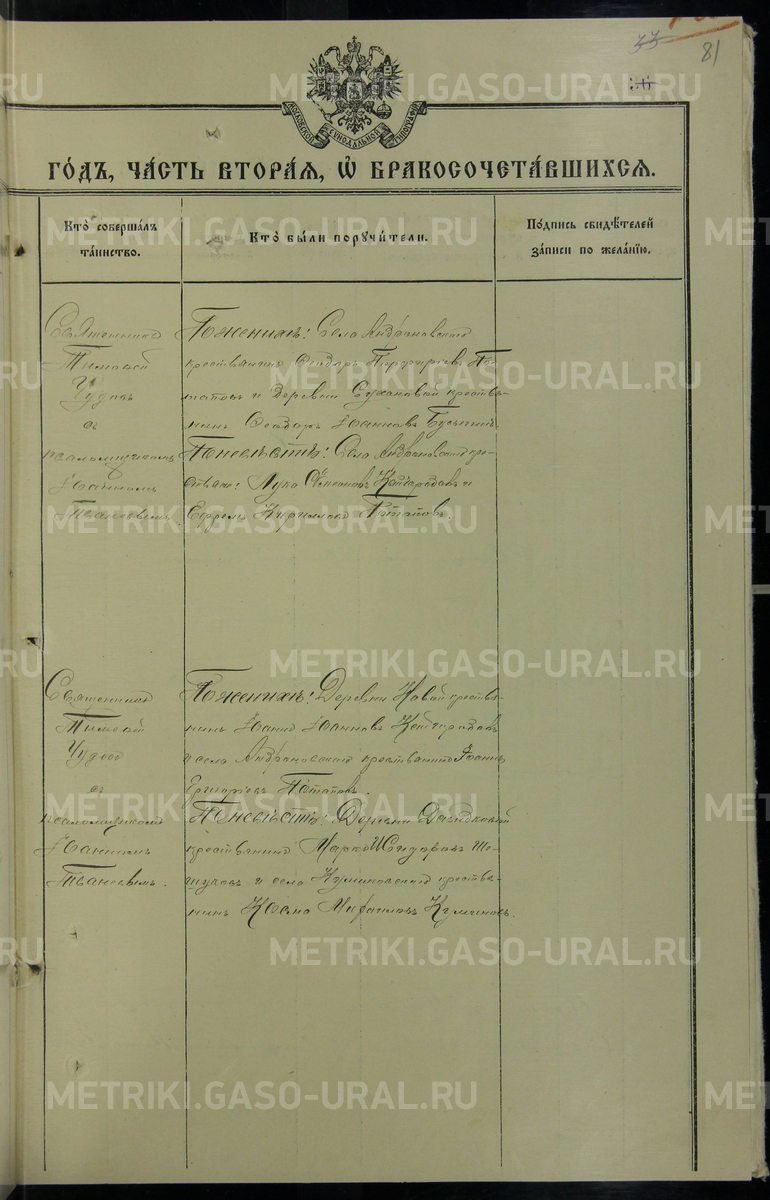 33
81
МОСКОВСКОЙ СУНОДАЛЬНОЙ ТИПОГРАФІИ
ГО́ДЪ, ЧА́СТЬ ВТОРА́Я, Ѡ҆ БРАКОСОЧЕТА́ВШИХСЯ.
Кто̀ соверша́лъ
та́инство.
Кто̀ бы́ли порꙋчи́тели.
По́дпись свидѣ́телей
за́писи по жела́нїю.
Священникъ
Тимофей
Чудовъ
съ
псаломщикомъ
Іоанномъ
По женихѣ: Села Андроновскаго
крестьянинъ Ѳеодоръ Порфирьевъ По-
татовъ и деревни Сухановой кресть-
нинъ Ѳеодоръ Іоанновъ
По невѣстѣ: Села Андроновскаго кре-
стьяне: Лука Симеоновъ Кайгородовъ и
Ефремъ Кириловъ Потаповъ.
Священникъ
Тимофей
Чудовъ
съ
псаломщикомъ
Іоанномъ
По женихѣ: Деревни Новой кресть-
нинъ Іоаннъ Іоанновъ Кайгородовъ
и села Андроновскаго крестьянинъ Іоаннъ
Григорьевъ Потаповъ.
По невѣстѣ: Деревни Давыдковой
крестьянинъ Марко Исидоровъ Ше-
шуковъ и села крестья-
нинъ Косма Михаиловъ
METRIKI.GASO-URAL.RU